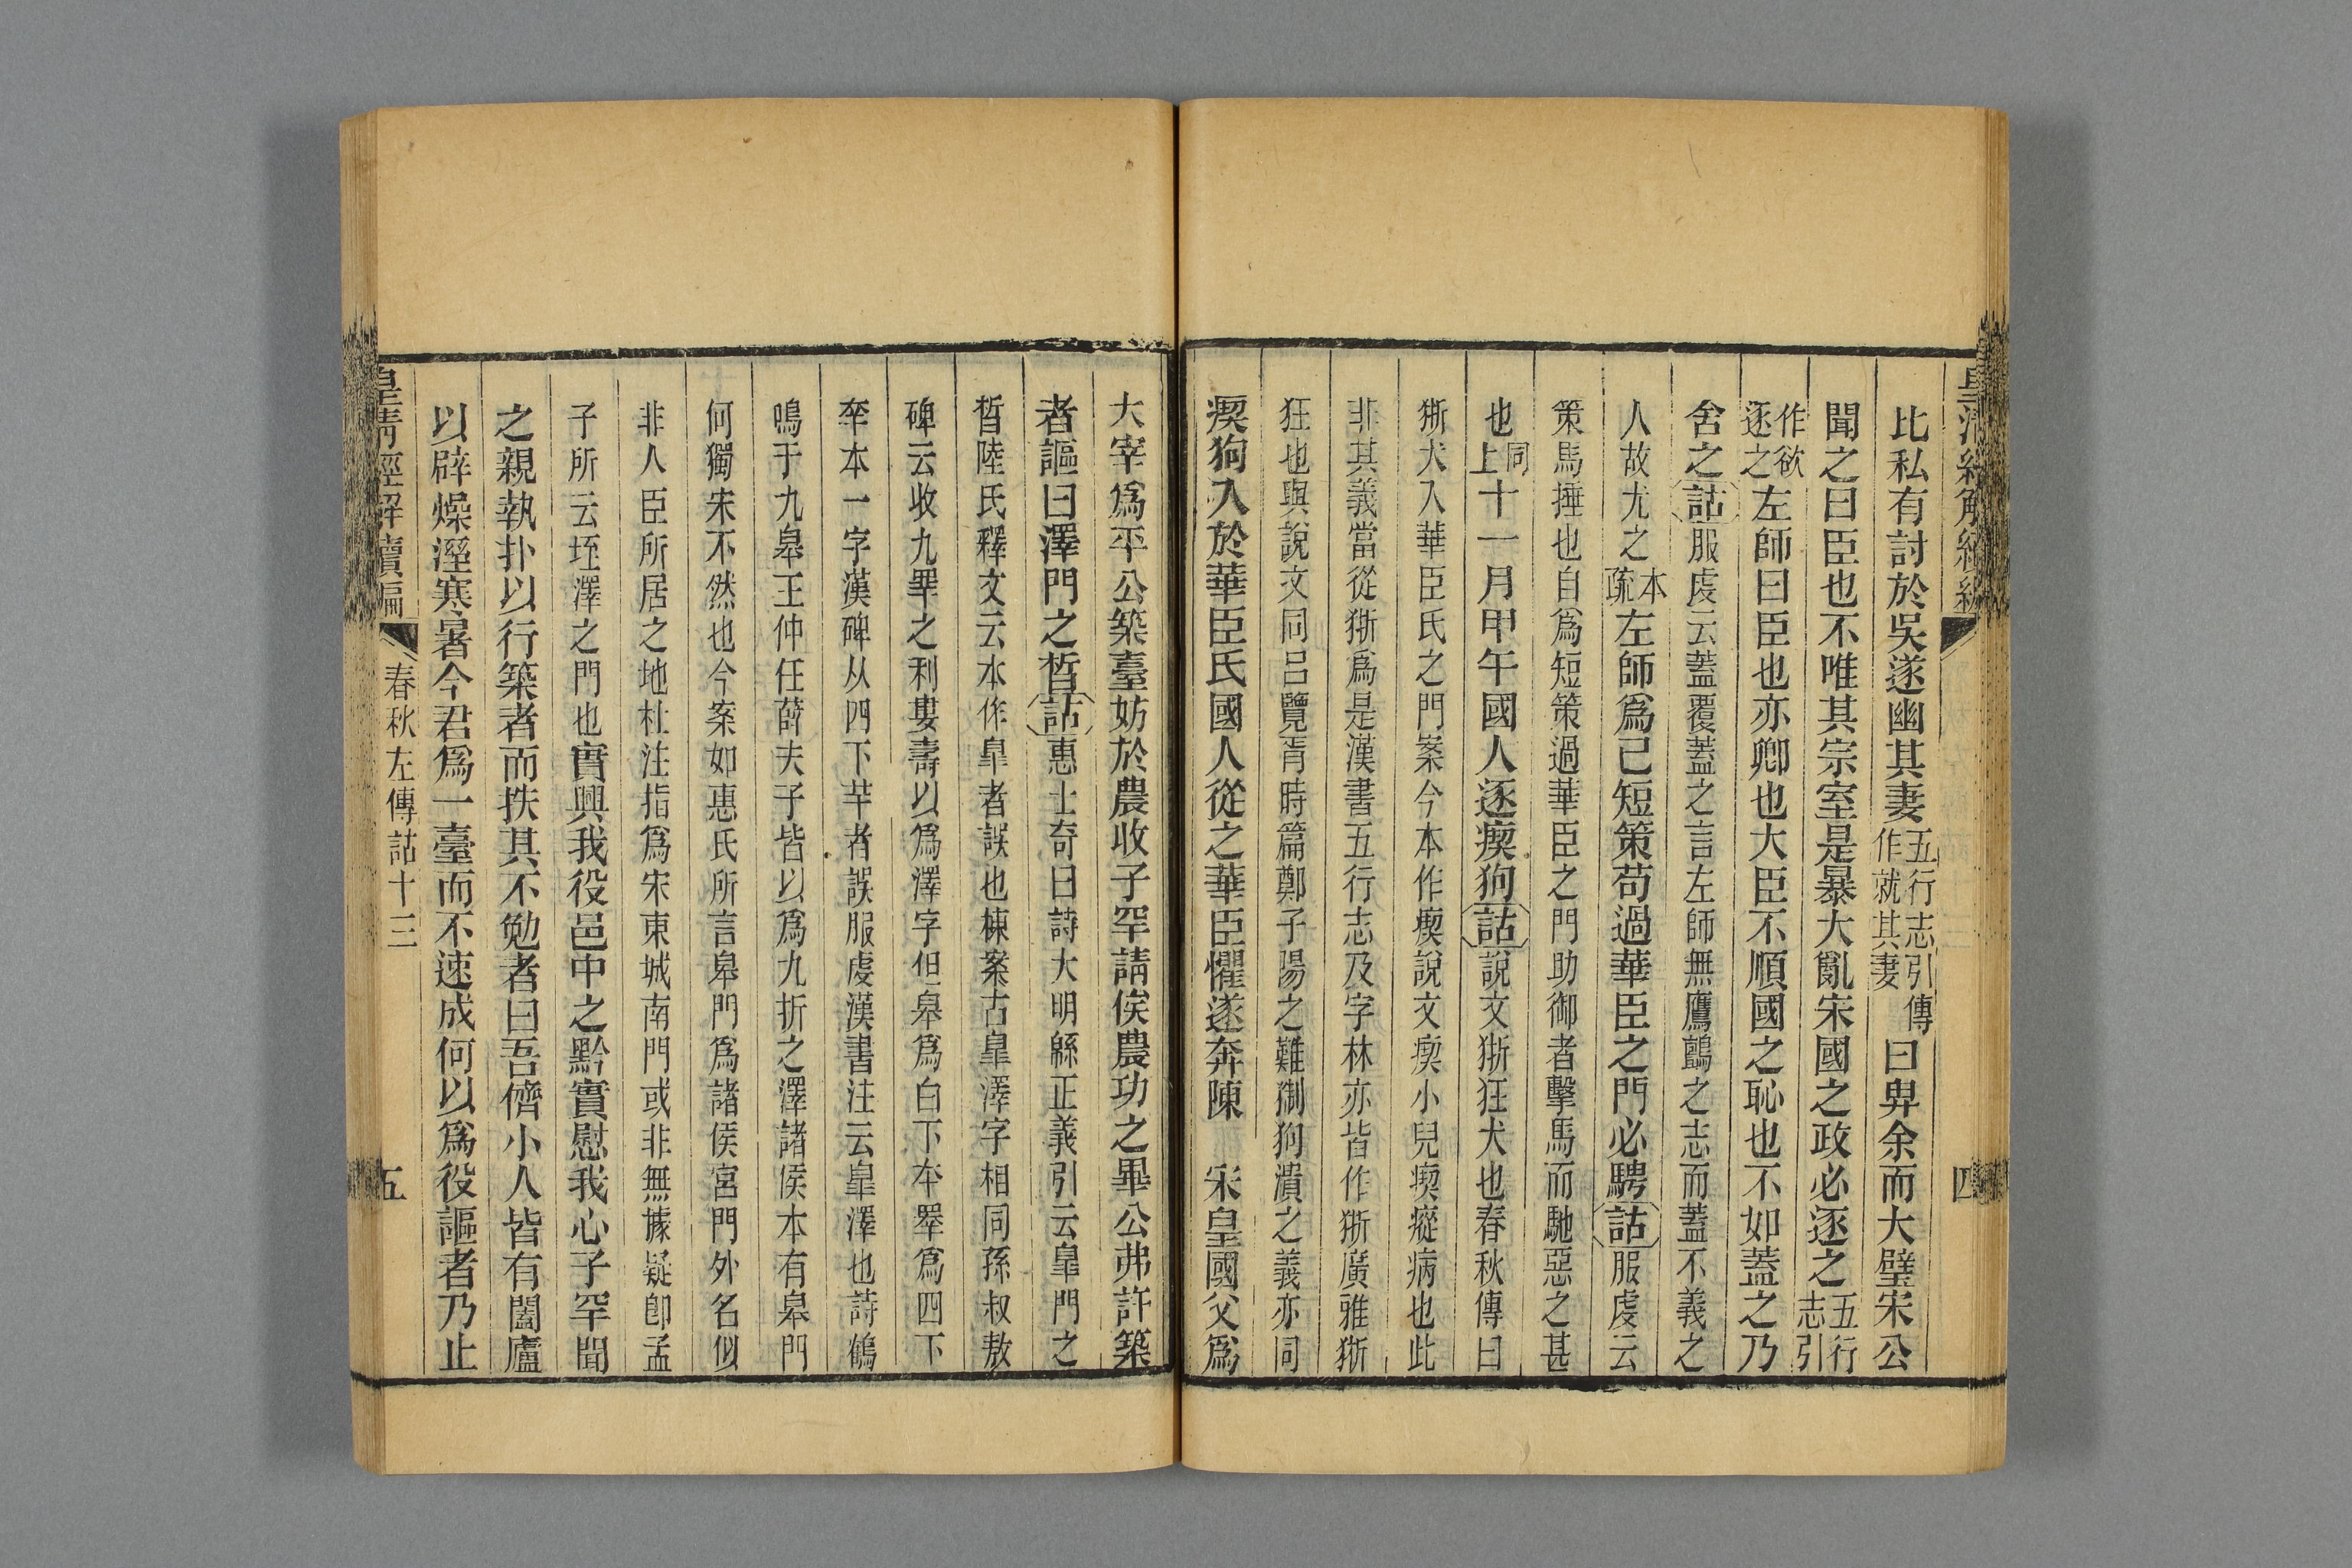 皇清經解續編
四
比私有討於吳遂幽其妻五行志引傳作就其妻曰畀余而大璧宋公
聞之曰臣也不唯其宗室是暴大亂宋國之政必逐之五行志引
作欲逐之左師曰臣也亦卿也大臣不順國之恥也不如蓋之乃
舍之詁服虔云蓋覆蓋之言左師無鷹鸇之志而蓋不義之
人故尤之本疏左師爲己短策苟過華臣之門必騁詁服虔云
策馬捶也自爲短策過華臣之門助御者擊馬而馳惡之甚
也同上十一月甲午國人逐瘈狗詁說文狾狂犬也春秋傳曰
狾犬入華臣氏之門案今本作瘈說文瘈小兒瘈瘲病也此
非其義當從狾爲是漢書五行志及字林亦皆作狾廣雅狾
狂也與說文同呂覽胥時篇鄭子陽之難猘狗潰之義亦同
瘈狗入於華臣氏國人從之華臣懼遂奔陳　宋皇國父爲
大宰爲平公築臺妨於農收子罕請俟農功之畢公弗許築
者謳曰澤門之晳詁惠士奇曰詩大明緜正義引云皐門之
晳陸氏釋文云本作皐者誤也棟案古皐澤字相同孫叔敖
碑云收九睪之利婁壽以爲澤字但皋爲白下夲睪爲四下
㚔本一字漢碑从四下芉者誤服虔漢書注云皐澤也詩鶴
鳴于九皋王仲任薛夫子皆以爲九折之澤諸侯本有皋門
何獨宋不然也今案如惠氏所言皋門爲諸侯宮門外名似
非人臣所居之地杜注指爲宋東城南門或非無據疑卽孟
子所云垤澤之門也實興我役邑中之黔實慰我心子罕聞
之親執扑以行築者而抶其不勉者曰吾儕小人皆有闔廬
以辟燥溼寒暑今君爲一臺而不速成何以爲役謳者乃止
皇清經解續編
春秋左傳詁十三
五